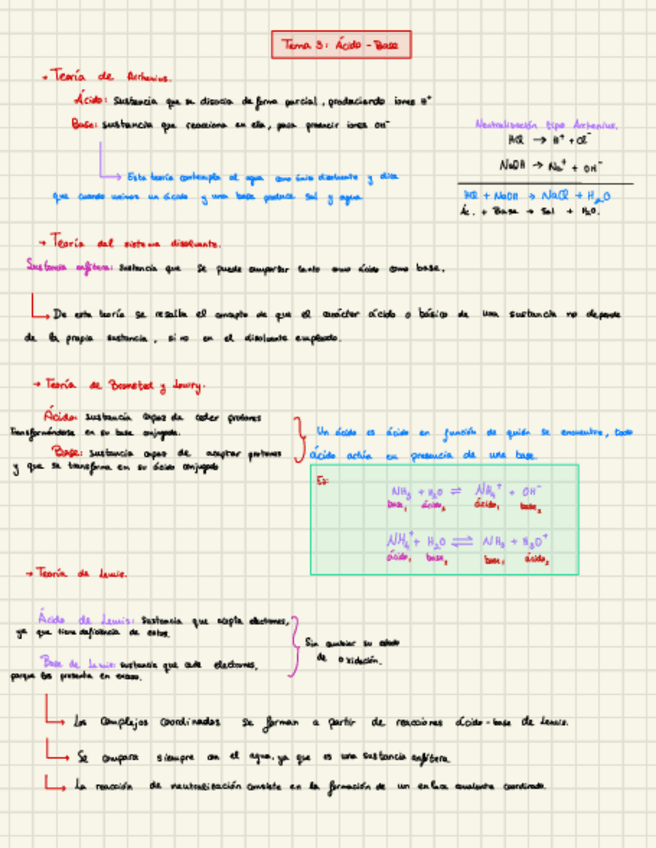 Tema 3: Ácido - Base
→ Teoría de Arrhenius.
Ácido: sustancia que se disocia de forma parcial, produciendo iones H⁺
Base: sustancia que reacciona en ella, para producir iones OH⁻
Neutralización tipo Arrhenius.
HCl → H⁺ + Cl⁻
NaOH → Na⁺ + OH⁻
HCl + NaOH → NaCl + H₂O
Ác. + Base → Sal + H₂O.
Esta teoría contempla al agua como único disolvente y dice
que cuando unimos un ácido y una base produce sal y agua
→ Teoría del sistema disolvente.
Sustancia anfótera: sustancia que se puede comportar tanto como ácido como base.
De esta teoría se resalta el concepto de que el carácter ácido o básico de una sustancia no depende
de la propia sustancia, sino en el disolvente empleado.
→ Teoría de Bronsted y Lowry.
Ácido: sustancia capaz de ceder protones
transformándose en su base conjugada.
Base: sustancia capaz de aceptar protones
y que se transforma en su ácido conjugado
Un ácido es ácido en función de quién se encuentre, todo
ácido actúa en presencia de una base.
Ej:
NH₃ + H₂O ⇌ NH₄⁺ + OH⁻
base₁ ácido₂ ácido₁ base₂
NH₄⁺ + H₂O ⇌ NH₃ + H₃O⁺
ácido₁ base₂ base₁ ácido₂
→ Teoría de Lewis.
Ácido de Lewis: sustancia que acepta electrones,
ya que tiene deficiencia de estos.
Base de Lewis: sustancia que cede electrones,
porque los presenta en exceso.
Sin cambiar su estado
de oxidación.
Los complejos coordinados se forman a partir de reacciones ácido-base de Lewis.
Se compara siempre con el agua, ya que es una sustancia anfótera.
La reacción de neutralización consiste en la formación de un enlace covalente coordinado.